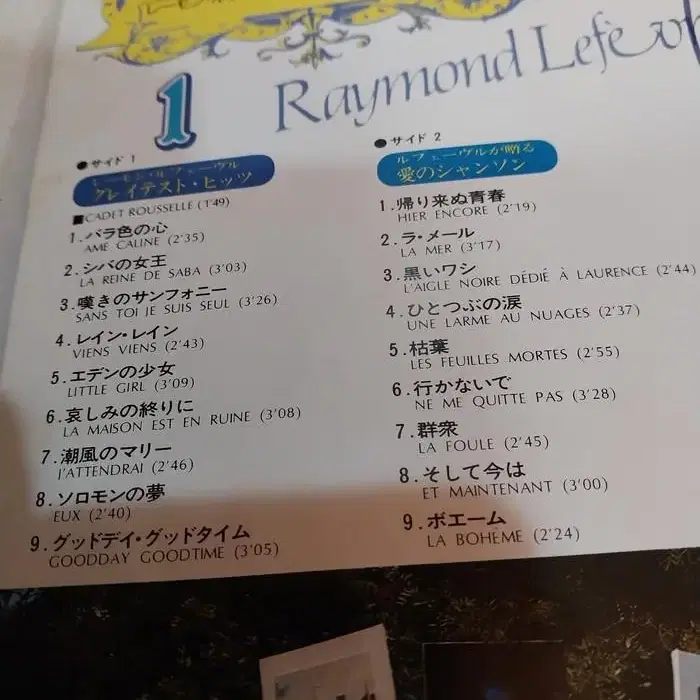 Raymond Lefèv
1
●サイド 1
レーモン・ルフェーヴル
グレイテスト・ヒッツ
■CADET ROUSSELLE (1'49)
1.バラ色の心
AME CALINE (2'35)
2.シバの女王
LA REINE DE SABA (3'03)
3.嘆きのサンフォニー
SANS TOI JE SUIS SEUL (3'26)
4.レイン・レイン
VIENS VIENS (2'43)
5.エデンの少女
LITTLE GIRL (3'09)
6.哀しみの終りに
LA MAISON EST EN RUINE (3'08)
7.潮風のマリー
J'ATTENDRAI (2'46)
8.ソロモンの夢
EUX (2'40)
9.グッドデイ・グッドタイム
GOODDAY GOODTIME (3'05)
●サイド 2
ルフェーヴルが贈る
愛のシャンソン
1.帰り来ぬ青春
HIER ENCORE (2'19)
2.ラ・メール
LA MER (3'17)
3.黒いワシ
L'AIGLE NOIRE DÉDIÉ À LAURENCE (2'44)
4.ひとつぶの涙
UNE LARME AU NUAGES (2'37)
5.枯葉
LES FEUILLES MORTES (2'55)
6.行かないで
NE ME QUITTE PAS (3'28)
7.群衆
LA FOULE (2'45)
8.そして今は
ET MAINTENANT (3'00)
9.ボエーム
LA BOHÈME (2'24)